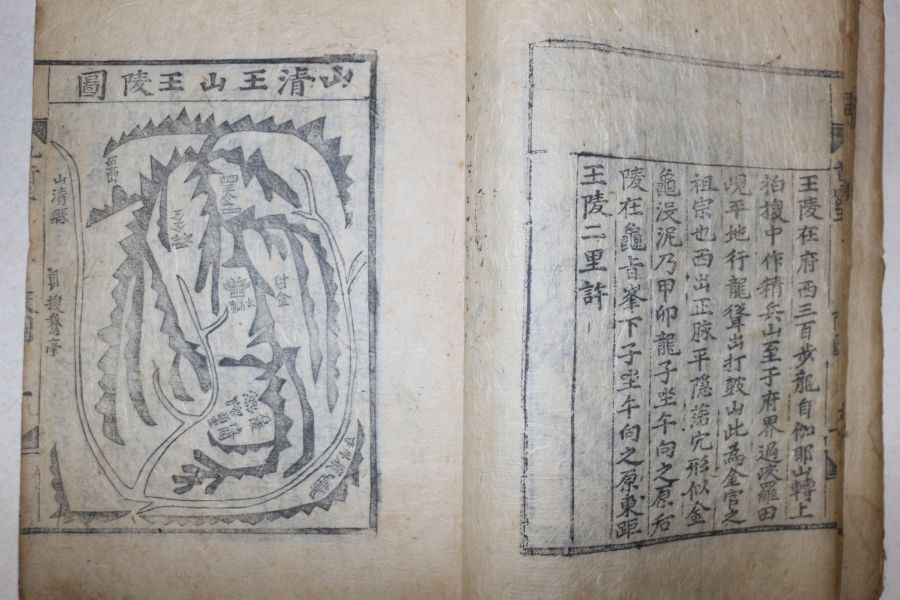 王陵在府西三百步龍自伽耶山轉上
拍搜中作精兵山至于府界過浚羅田
峴平地行龍聳出打鼓山此為金官之
祖宗也西出正脉平隐落穴形似金
龜没泥乃甲卯龍子坐午向之原后
陵在龜旨峯下子坐午向之原東距
王陵二里許
山清王山王陵圖
山清縣
換鵞亭